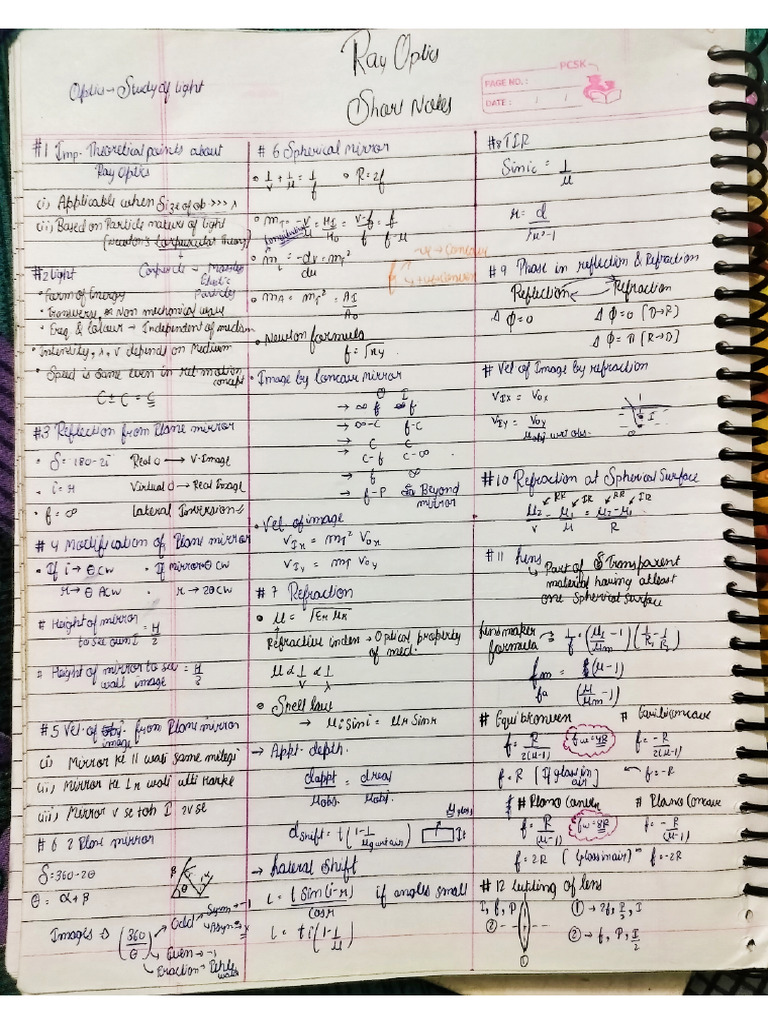 Ray Optics
Short Notes
Optics → Study of light
PCSK
PAGE NO.:
DATE: / /
#1 Imp. Theoretical points about
Ray Optics
(i) Applicable when Size of ob >>> λ
(ii) Based on Particle nature of light
(Newton's Corpuscular Theory)
Corpuscle → Massless
Elastic
Particles
#2 Light
• Form of Energy
• Transverse, Non mechanical wave
• Freq & Colour → Independent of medium
• Intensity, λ, v depends on Medium
• Speed is same even in rel motion
concept
C ± C = C
#3 Reflection from Plane mirror
• δ = 180-2i Real O → V. Image
• i = r Virtual O → Real Image
• f = ∞ Lateral Inversion
#4 Modification of Plane mirror
• If i → θ CW • If mirror θ CW
r → θ ACW • r → 2θ CW
# Height of mirror = H/2
to see own I
= Height of mirror to see = H/3
wall image
#5 Vel of image from Plane mirror
(i) Mirror ke || wali same milegi
(ii) Mirror ke ⊥r wali ulti karke
(iii) Mirror v se toh I 2v se
#6 2 Plane mirror
δ = 360-2θ
θ = α+β
Images ⇒ (360/θ) → Odd → Sym → -1
→ Asym → x
→ Even → -1
→ Fraction →
# 6 Spherical mirror
• 1/v + 1/u = 1/f • R = 2f
• mT = -v/u = HI/HO = v-f/f = f/f-u
Longitudinal
• mL = -dv/du = mT²
f → -ve → Concave
→ +ve → Convex
• mA = mT² = AI/AO
• Newton formula
f = √xy
• Image by Concave mirror
O I
→ ∞ f
→ ∞-C f-C
→ C C
→ C-f C-∞
→ f ∞
→ f-P Beyond
mirror
• Vel of image
VIx = mT² VOx
VIy = mT VOy
#7 Refraction
• μ = √εr μr
Refractive index → Optical property
of med.
μ ∝ 1/v ∝ 1/λ
• Snell law
→ μi sin i = μr sin r
→ Appt. depth.
dappt/μobs. = dreal/μobj.
dshift = t(1 - 1/μg wrt air)
→ Lateral Shift
L = t Sin(i-r)/cos r if angles small
L = ti(1 - 1/μ)
#8 TIR
Sin ic = 1/μ
r = d/√μ²-1
#9 Phase in reflection & Refraction
Reflection Refraction
Δφ=0 Δφ=0 [D→R]
Δφ=π [R→D]
# Vel of Image by refraction
VIx = VOx
VIy = VOy/μobj wrt obs.
#10 Refraction at Spherical Surface
RR IR RR IR
μ2/v - μ1/u = μ2-μ1/R
#11 Lens
→ Part of Transparent
material having atleast
one Spherical Surface
Lens maker
formula ⇒ 1/f = (μL/μm - 1)(1/R1 - 1/R2)
fm/fa = (μ-1)/(μ/μm - 1)
# Equiconvex # Equiconcave
f = R/2(μ-1) fw=4R f = -R/2(μ-1)
f = R [If glass in air] f = -R
# Plano Convex # Plano Concave
f = R/(μ-1) fw=8R f = -R/(μ-1)
f = 2R (Glass in air) f = -2R
#12 Cutting of lens
I, f, P ① → 2f, P/2, I
② ② → f, P, I/2
①